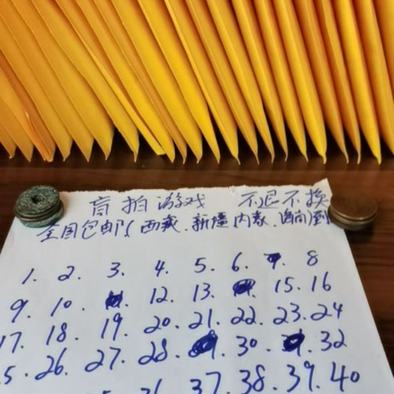 盲拍游戏 不退不换
全国包邮(西藏.新疆内蒙.
1. 2. 3. 4. 5. 6. 8
9. 10. 12. 13. 15. 16
17. 18. 19. 20. 21. 22. 23. 24
5. 26. 27. 28. 30. 32
37. 38. 39. 40